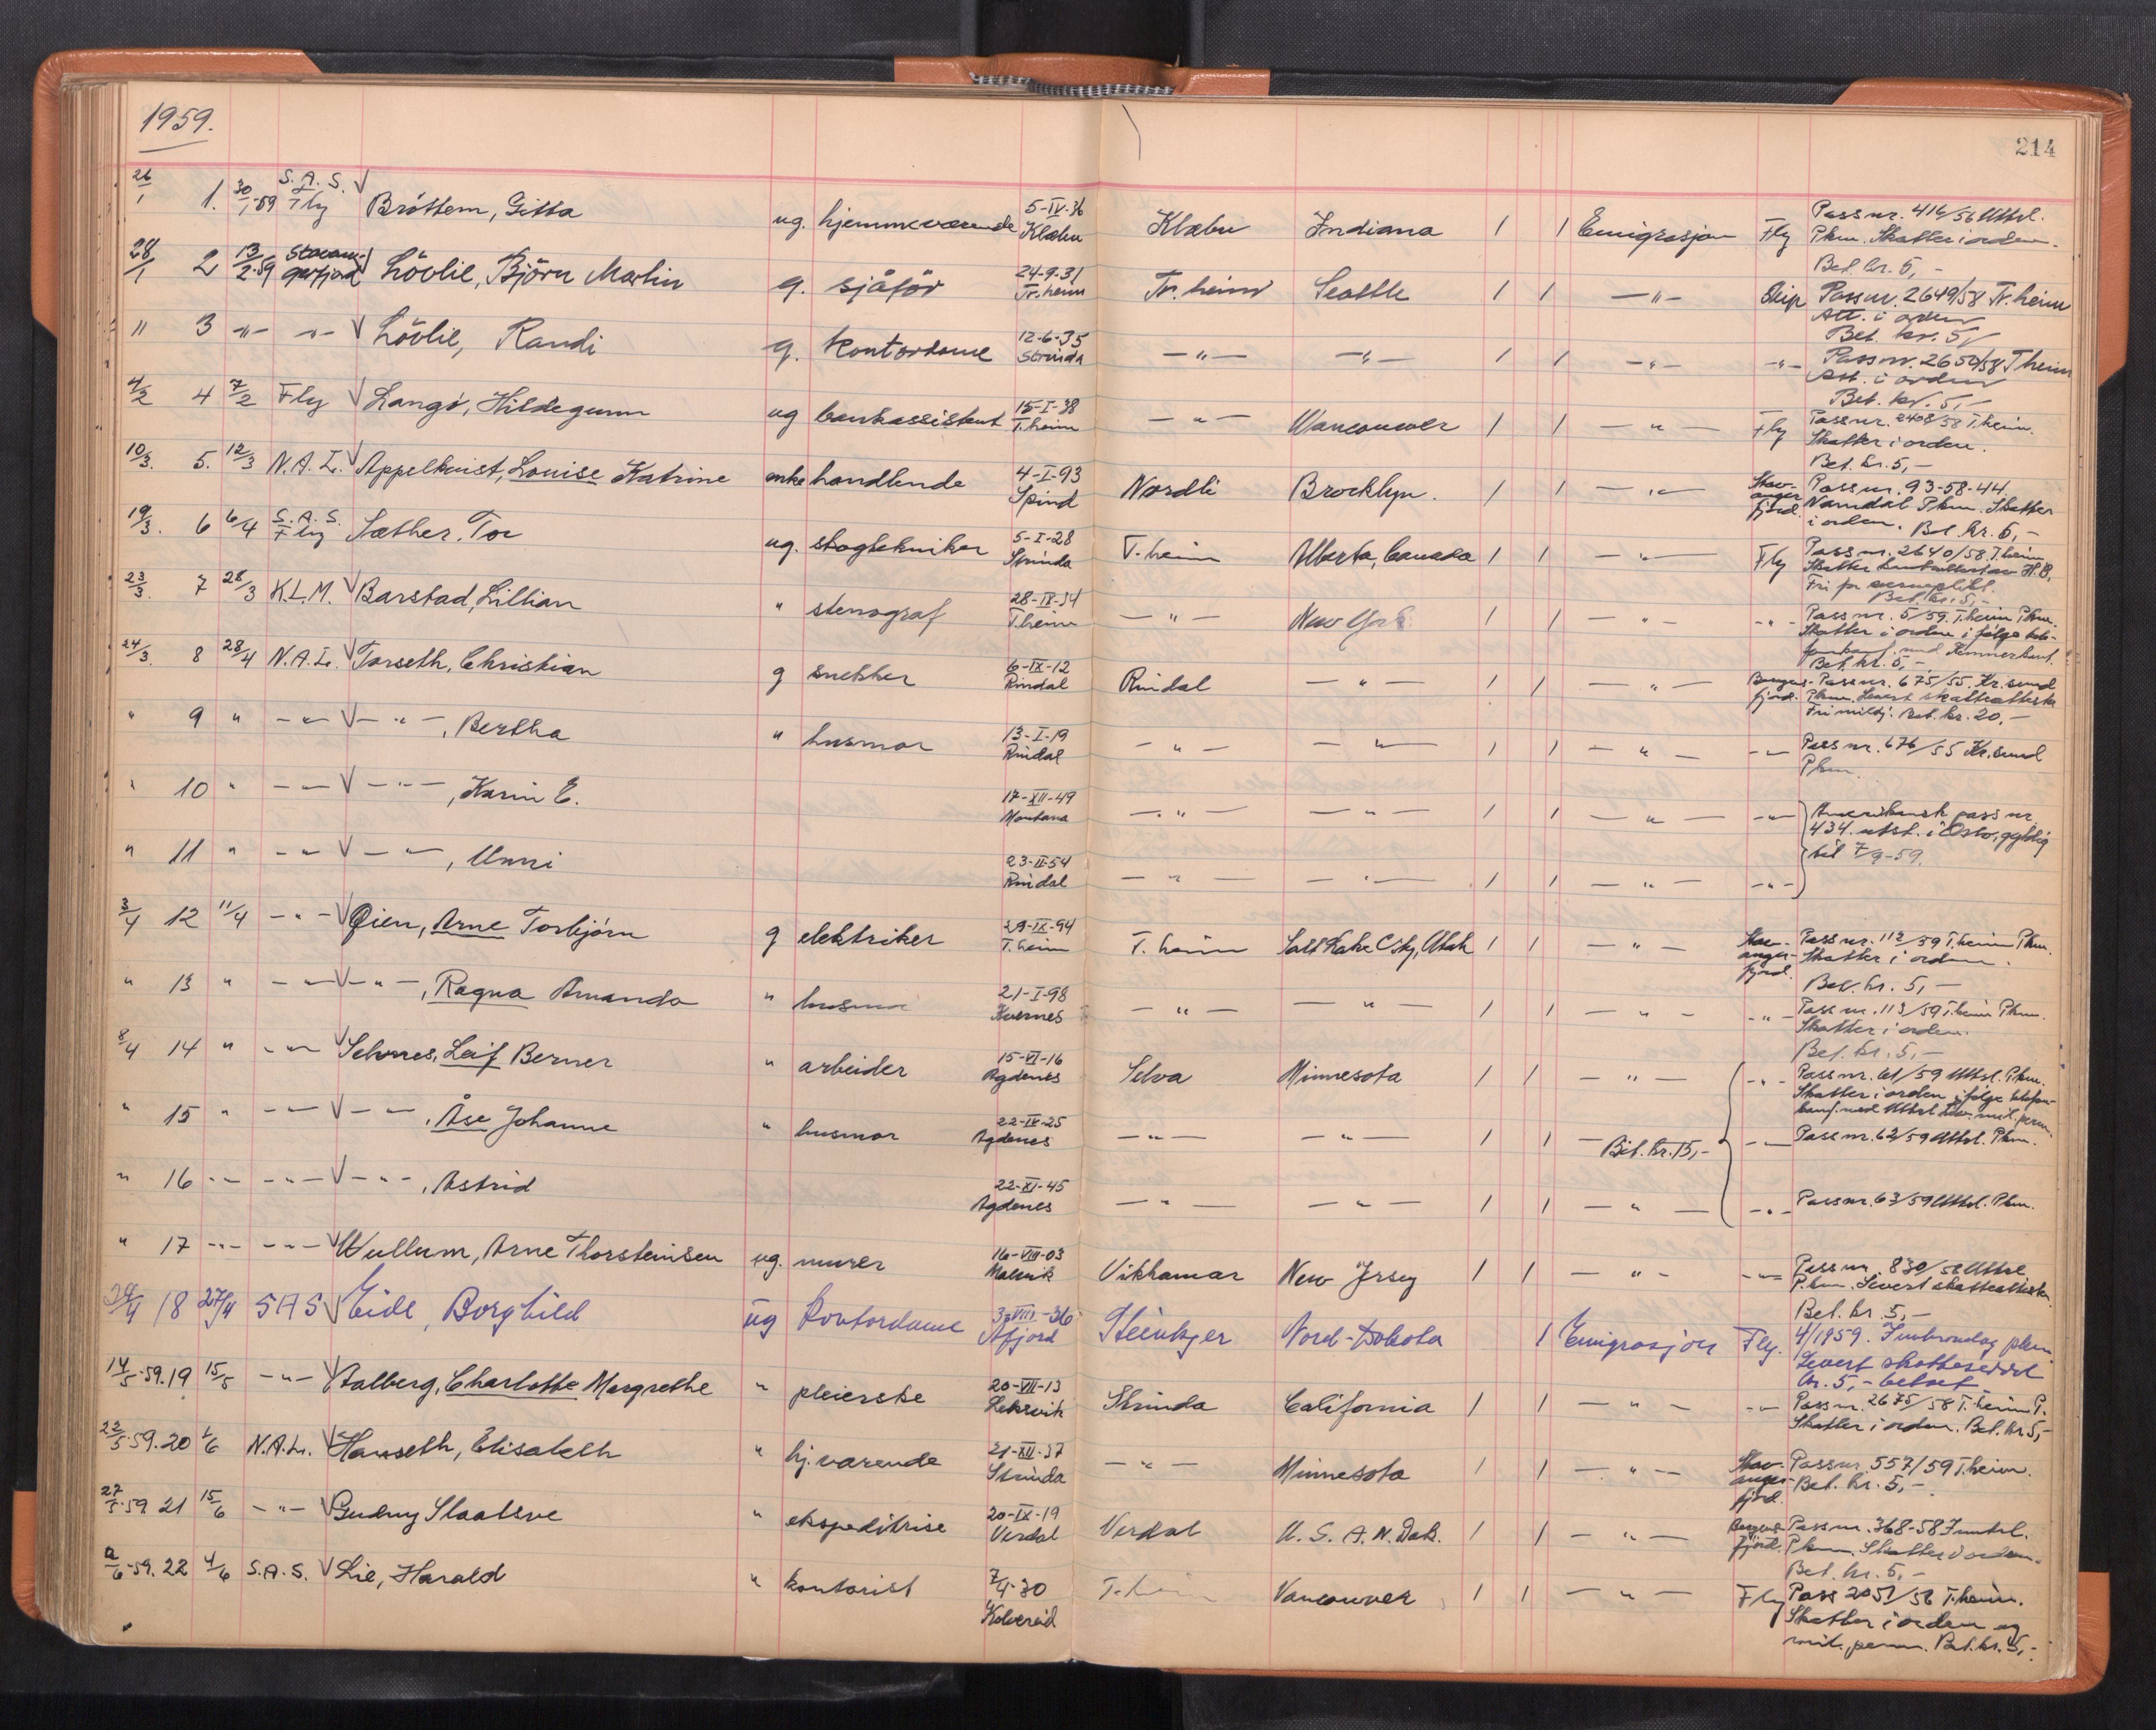 1959.
214
26/1 1. 30/1-59 S.A.S. Fly Bröttem, Gitta ug. hjemmeværende 5-IV-36 Klæbu Klæbu Indiana 1 1 Emigrasjon Fly Pass nr. 416/56 Uttrl. Pkm. Skatter i orden. Bet. kr. 5,-
28/1 2 13/2-59 Stavangerfjord Lövlie, Björn Martin g. sjåför 24-9-31 Tr.heim Tr.heim Seattle 1 1 -"- Skip Pass nr. 2649/58 Tr.heim Att. i orden Bet. kr. 5,-
" 3 -"- -"- Lövlie, Randi g. kontordame 12-6-35 Strinda -"- -"- 1 1 -"- -"- Pass nr. 2650/58 T.heim Att. i orden Bet. kr. 5,-
4/2 4 7/2 Fly Langö, Hildegunn ug bankassistent 15-I-38 T.heim -"- Wancouver 1 1 -"- Fly Pass nr. 2408/58 T.heim. Skatter i orden. Bet. kr. 5,-
10/3. 5. 12/3 N.A.L. Appelkvist, Louise Katrine enke handlende 4-I-93 Spind Nordli Brocklyn. 1 1 -"- Stavangerfjord. Pass nr. 93-58-44 Namdal Pkm. Skatter i orden. Bet. kr. 5,-
19/3. 6 6/4 S.A.S. Fly Sæther, Tor ug. skogtekniker 5-I-28 Strinda T.heim Alberta, Canada 1 1 -"- Fly Pass nr. 2640/58 T.heim Skatter H.B. Fri for verneplikt. Bet. kr. 5,-
23/3. 7 28/3 K.L.M. Barstad, Lillian " stenograf 28-IX-34 T.heim -"- New York 1 1 -"- -"- Pass nr. 5/59 T.heim Pkm. Skatter i orden i følge med Kemnerkont. Bet. kr. 5,-
24/3. 8 28/4 N.A.L. Torseth, Christian g snekker 6-IX-12 Rindal Rindal -"- 1 1 -"- Bergensfjord. Pass nr. 675/55. Kr.sund Pkm. Levert skatteattester Fri militj. Bet. kr. 20,-
" 9 " -"- -"-, Bertha " husmor 13-I-19 Rindal -"- -"- 1 1 -"- -"- Pass nr. 676/55 Kr.sund Pkm.
" 10 " -"- -"-, Karin E. 17-XII-49 Montana -"- -"- 1 1 -"- -"- Amerikansk pass nr. 434 utst. i Oslo, gyldig til 7/9-59.
" 11 " -"- -"-, Unni 23-II-54 Rindal -"- -"- 1 1 -"- -"-
3/4 12 11/4 -"- Øien, Arne Torbjörn g elektriker 29-IX-94 T.heim T.heim Salt Lake City, Utah 1 1 -"- Stavangerfjord. Pass nr. 112/59 T.heim Pkm. Skatter i orden. Bet. kr. 5,-
" 13 " -"- -"-, Ragna Amanda " husmor 21-I-98 Kvernes -"- -"- 1 1 -"- -"- Pass nr. 113/59 T.heim Pkm. Skatter i orden. Bet. kr. 5,-
8/4 14 " -"- Selvnes, Leif Berner " arbeider 15-VI-16 Agdenes Selva Minnesota 1 1 -"- -"- Pass nr. 61/59 Uttrl. Pkm. Skatter i orden ifølge telefonkonf. med Uttrl. mil. perm.
" 15 " -"- -"-, Åse Johanne " husmor 22-IV-25 Agdenes -"- -"- 1 1 - Bet. kr. 15,- -"- Pass nr. 62/59 Uttrl. Pkm.
" 16 -"- -"- -"-, Astrid 22-XI-45 Agdenes -"- -"- 1 1 -"- -"- Pass nr. 63/59 Uttrl. Pkm.
" 17 -"- -"- Wullum, Arne Thorsteinsen ug. murer 16-VIII-03 Malvik Vikhamar New Jrsey 1 1 -"- -"- Pass nr. 830/56 Uttrl. P.km. Levert skatteattester. Bet. kr. 5,-
24/4 18 27/4 SAS Eide, Borghild ug kontordame 3-VIII-36 Åfjord Steinkjer Nord-Dakota 1 Emigrasjon Fly. 4/1959. Innherred pkm. Levert skatteseddel kr. 5,- betalt
14/5-59. 19 15/5 -"- Aalberg, Charlotte Margrethe " pleierske 20-VII-13 Leksvik Strinda California 1 1 -"- -"- Pass nr. 2675/58 T.heim P. Skatter i orden. Bet. kr. 5,-
22/5-59. 20 1/6 N.A.L. Hanseth, Elisabeth " hj.værende 21-XII-37 Strinda -"- Minnesota 1 1 -"- Stavangerfjord. Pass nr. 557/59 T.heim. Bet. kr. 5,-
27/5-59. 21 15/6 -"- Gudny Slaatsve " ekspeditrise 20-IX-19 Verdal Verdal U.S.A. N.Dak. 1 1 -"- Bergensfjord. Pass nr. 368-58 Inntrl. Pkm. Skatter i orden. Bet. kr. 5,-
2/6-59. 22 4/6 S.A.S. Lie, Harald " kontorist 7/4-30 Kolvereid T.heim Vancouver 1 1 -"- Fly Pass 2051/56 T.heim. Skatter i orden og mil. perm. Bet. kr. 5,-